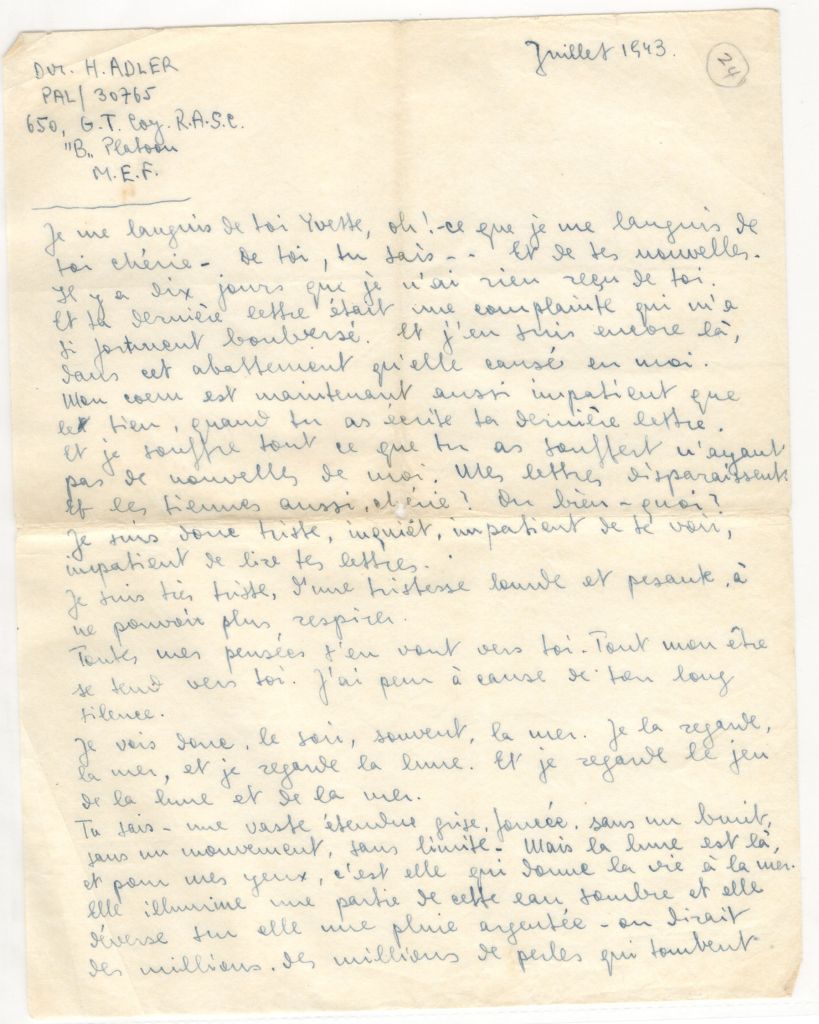 Juillet 1943.
24
Dvr. H. ADLER
PAL/ 30765
650, G.T. Coy. R.A.S.C.
"B„ Platoon
M.E.F.
Je me languis de toi Yvette, oh! - ce que je me languis de
toi chérie - De toi, tu sais - - Et de tes nouvelles.
Il y a dix jours que je n'ai rien reçu de toi.
Et ta dernière lettre était une complainte qui m'a
si fortement boulversé. Et j'en suis encore là,
dans cet abattement qu'elle causé en moi.
Mon coeur est maintenant aussi impatient que
le tien, quand tu as écrite ta dernière lettre.
Et je souffre tout ce que tu as souffert n'ayant
pas de nouvelles de moi. Mes lettres disparaissent
et les tiennes aussi, chérie? Ou bien - quoi?
Je suis donc triste, inquiét, impatient de te voir,
impatient de lire tes lettres.
Je suis très triste, d'une tristesse lourde et pesante, à
ne pouvoir plus respirer.
Toutes mes pensées s'en vont vers toi. Tout mon être
se tend vers toi. J'ai peur à cause de ton long
silence.
Je vois donc, le soir, souvent, la mer. Je la regarde,
la mer, et je regarde la lune. Et je regarde le jeu
de la lune et de la mer.
Tu sais - une vaste étendue grise, foncée, sans un bruit,
sans un mouvement, sans limite - Mais la lune est là,
et pour mes yeux, c'est elle qui donne la vie à la mer.
Elle illumine une partie de cette eau sombre et elle
déverse sur elle une pluie argentée - on dirait
des millions, des millions de perles qui tombent